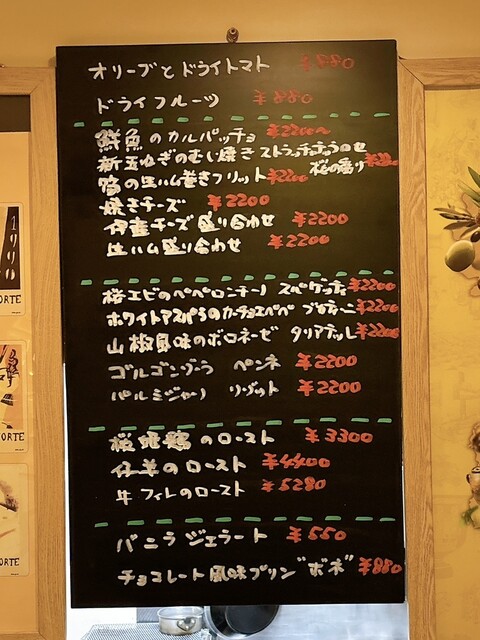 オリーブとドライトマト ¥880
ドライフルーツ ¥880
鮮魚のカルパッチョ ¥2200〜
新玉ねぎのむし焼き ストラッチャテッラのせ
桜の香り
筍の生ハム巻きフリット ¥2200
焼きチーズ ¥2200
伊産チーズ盛り合わせ ¥2200
生ハム盛り合わせ ¥2200
桜エビのペペロンチーノ スペゲッティ ¥2200
ホワイトアスパラのカーチョエペペ ¥2200
山椒風味のボロネーゼ タリアテッレ ¥2200
ゴルゴンゾーラ ペンネ ¥2200
パルミジャーノ リゾット ¥2200
桜姫鶏のロースト ¥3300
仔羊のロースト ¥4400
牛フィレのロースト ¥5280
バニラジェラート ¥550
チョコレート風味プリン"ボネ" ¥880
ORTE
ORTE
ORTE